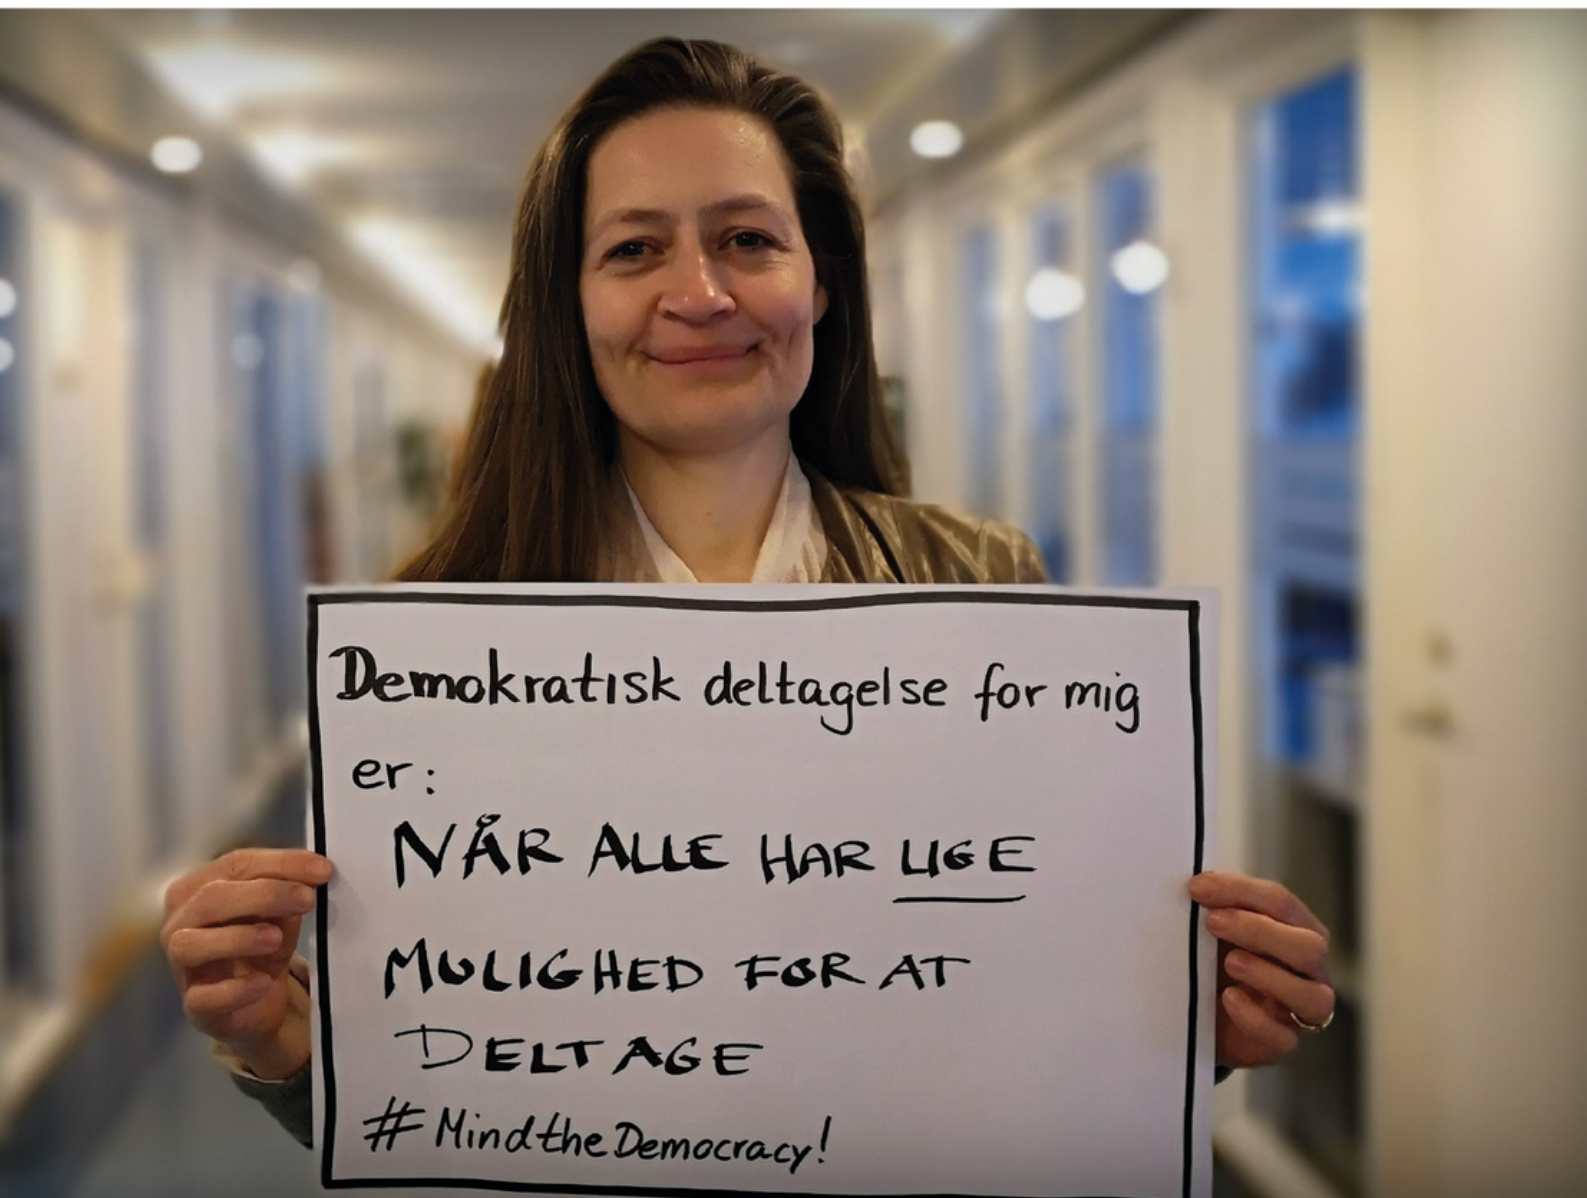 Demokratisk deltagelse for mig
er:
NÅR ALLE HAR LIGE
MULIGHED FOR AT
DELTAGE
#MindtheDemocracy!